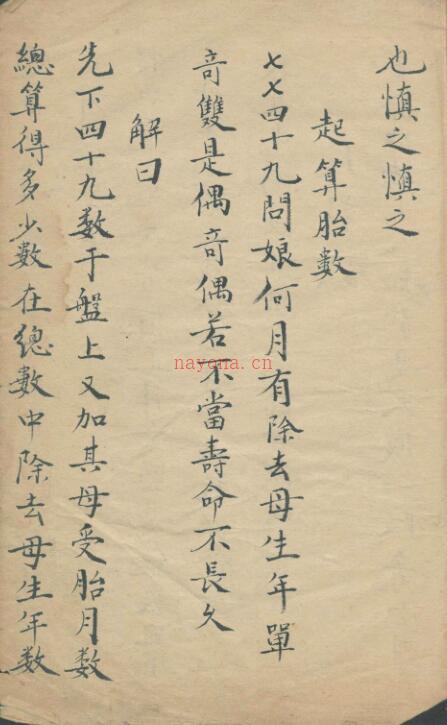 也慎之慎之
起算胎數
七七四十九問娘何月有除去母生年單
奇雙是偶奇偶若不當壽命不長久
解曰
先下四十九数于盤上又加其母受胎月数
總算得多少數在總數中除去母生年数
nayona.cn